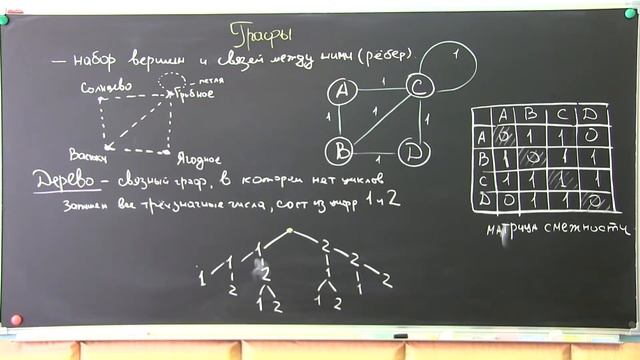 Графы
— набор вершин и связей между ними (рёбер).
петля
Солнцево
Грибное
Васюки
Ягодное
A
1
C
1
1
1
1
B
1
D
A B C D
A 0 1 1 0
B 1 0 1 1
C 1 1 1 1
D 0 1 1 0
матрица смежности
Дерево — связный граф, в котором нет циклов
Запишем все трёхзначные числа, сост из цифр 1 и 2
1 2
1 1 2 2
1 2 2 1 1 2
1 2 1 2